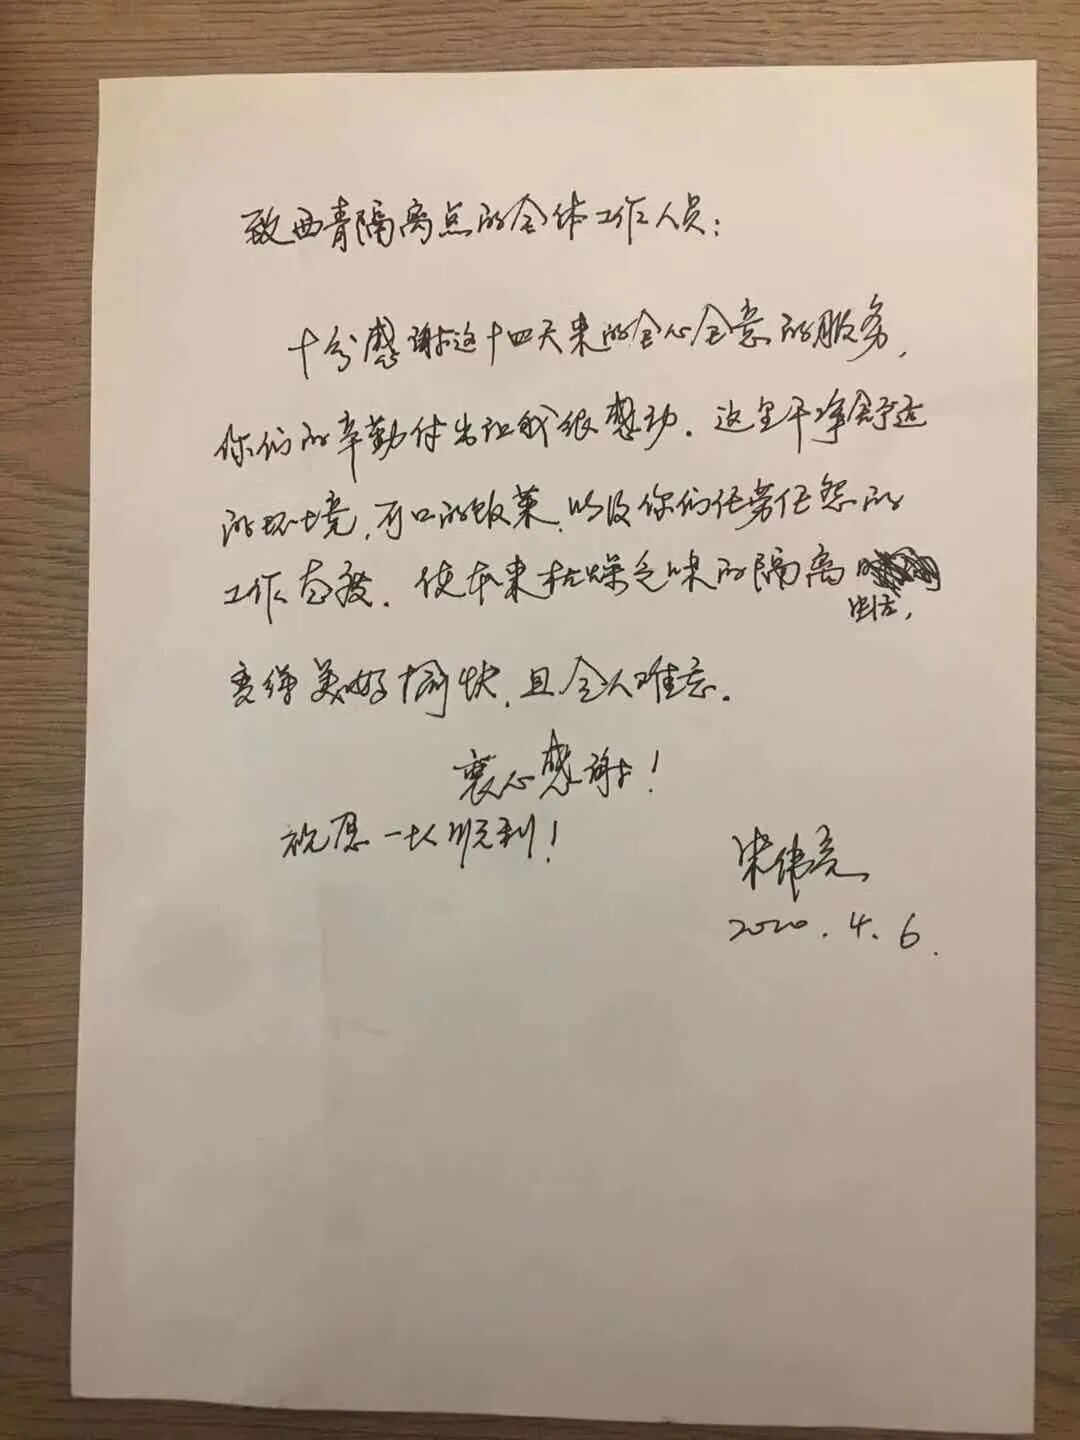 致西青隔离点的全体工作人员：
十分感谢这十四天来的全心全意的服务，
你们的辛勤付出让我很感动。这里干净舒适
的环境，可口的饭菜，以及你们任劳任怨的
工作态度。使本来枯燥乏味的隔离
生活，
变得美好愉快，且令人难忘。
衷心感谢！
祝愿一切顺利！
宋伟亮
2020.4.6.